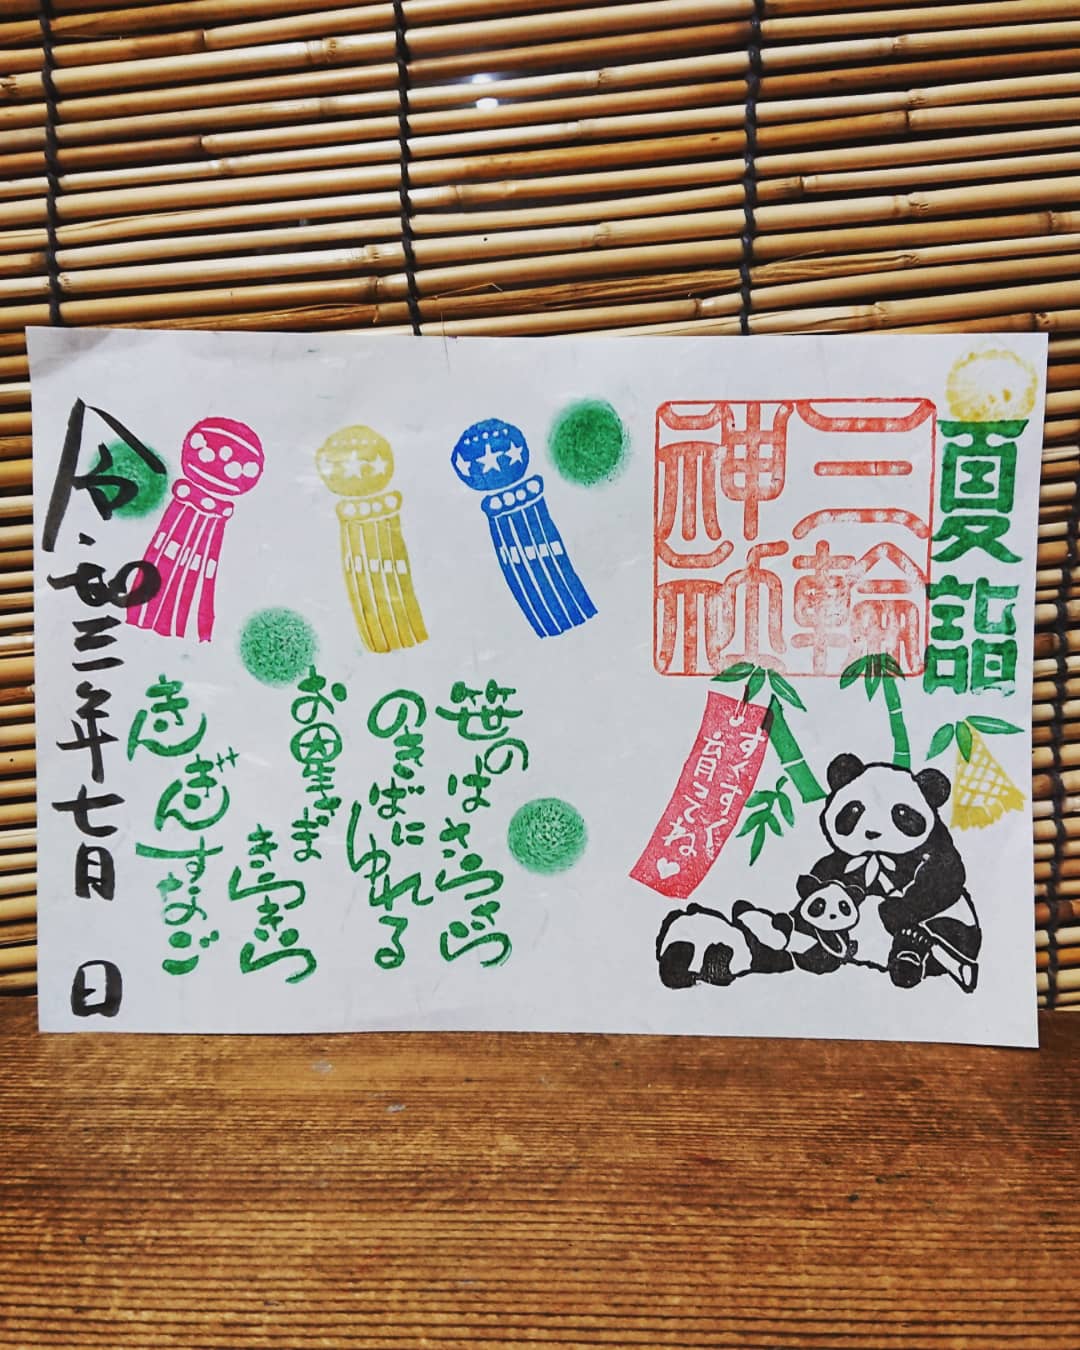 夏詣
三輪
神社
すくすく
育ってね♡
笹のはさらさら
のきばにゆれる
お星さま
きらきら
きんぎんすなご
令和三年七月 日